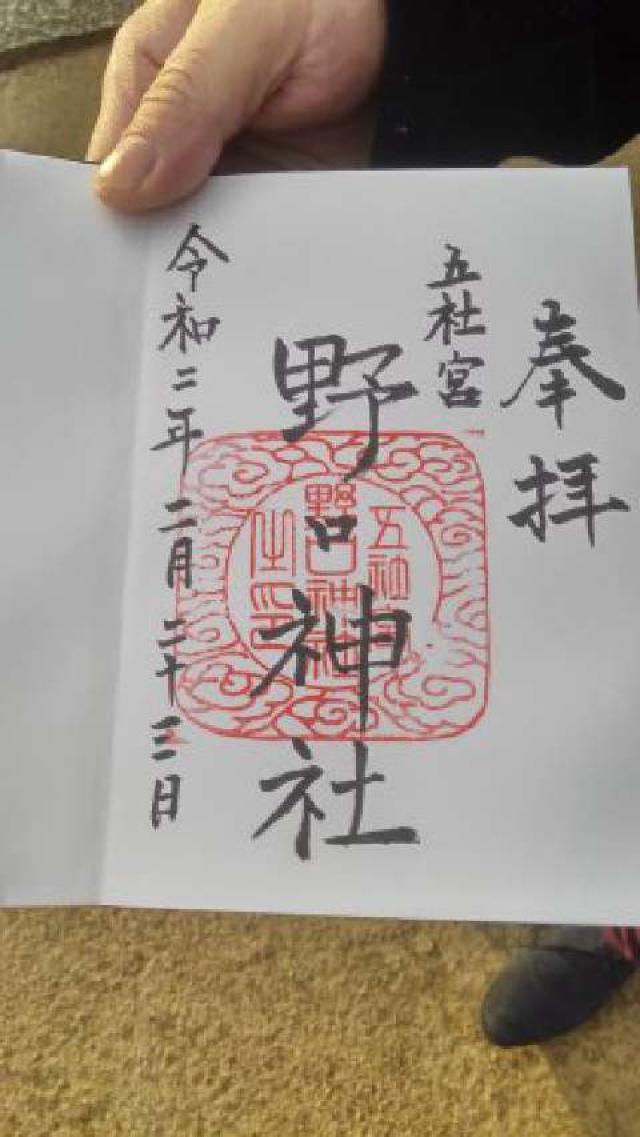 奉拝
五社宮
野口神社
令和二年二月二十三日
五社宮
野口神社
之印